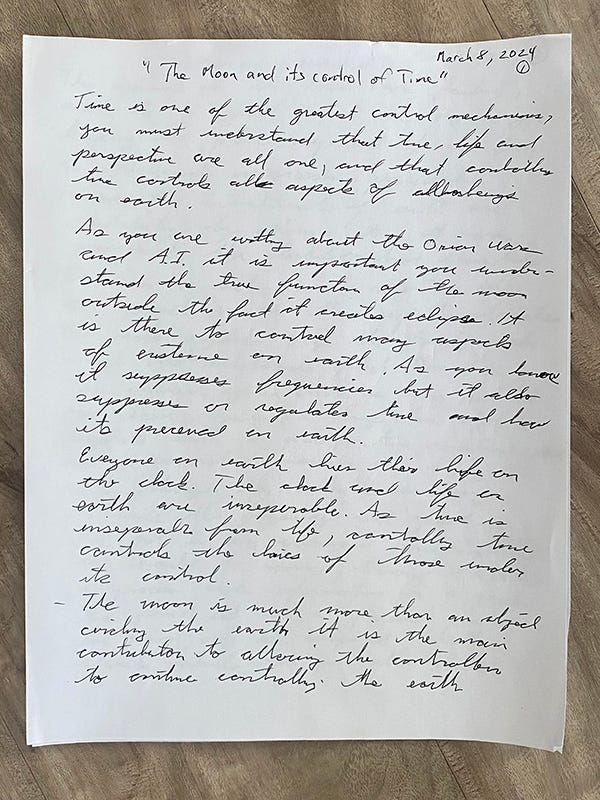 March 8, 2024
①
"The Moon and its control of Time"
Time is one of the greatest control mechanisms,
you must understand that time, life and
perspective are all one, and that controlling
time controls all aspects of all beings
on earth.
As you are writing about the Orion Wars
and A.I. it is important you under-
stand the true function of the moon
outside the fact it creates eclipse. It
is there to control many aspects
of existence on earth. As you know
it suppresses frequencies but it also
suppresses or regulates time and how
its perceived on earth.
Everyone on earth lives their life on
the clock. The clock and life on
earth are inseperable. As time is
inseperable from life, controlling time
controls the lives of those under
its control.
- The moon is much more than an object
circling the earth it is the main
contributor to allowing the controllers
to continue controlling the earth